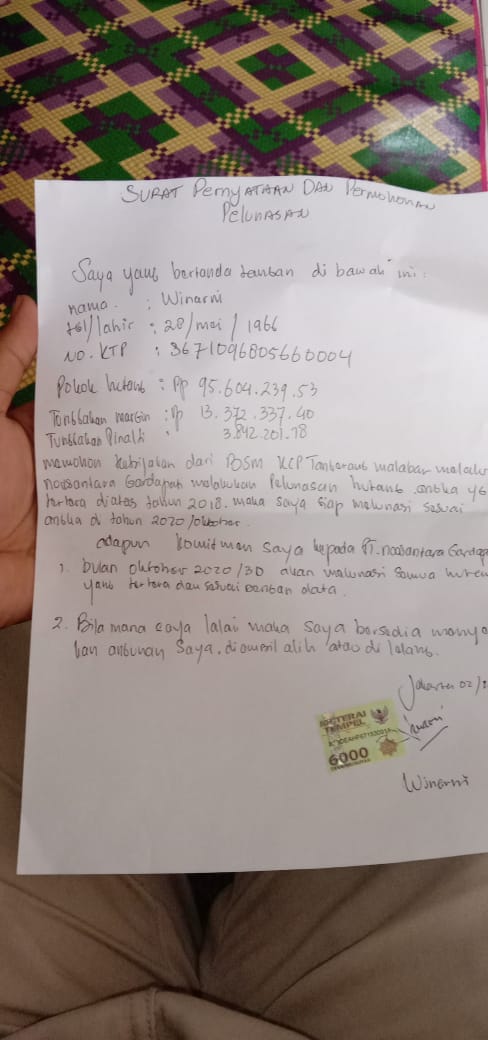 SURAT PernyATAAN DAN PermohonAN
PelunASAN
Saya yang bertanda tangan di bawah ini :
nama : Winarni
tgl/lahir : 28/mei/1966
NO. KTP : 3671096805660004
Pokok hutang : Rp 95.604.239.53
Tunggakan margin : Rp 13.372.337.40
Tunggakan Pinalti 3.842.201.78
memohon kebijakan dari BSM KCP Tangerang malabar melalui
noosantara Gardapati melakukan Pelunasan hutang angka yg
tertera diatas tahun 2018. maka saya siap melunasi sesuai
angka di tahun 2020/oktober.
adapun komitmen saya kepada PT. noosantara Gardapa
1. bulan oktober 2020/30 akan melunasi semua huten
yang tertera dan sesuai dengan data.
2. Bila mana saya lalai maka saya bersedia menye
kan angunan saya, diambil alih atau di lelang.
Jakarta 02/
METERAI
TEMPEL
6000
Winarni